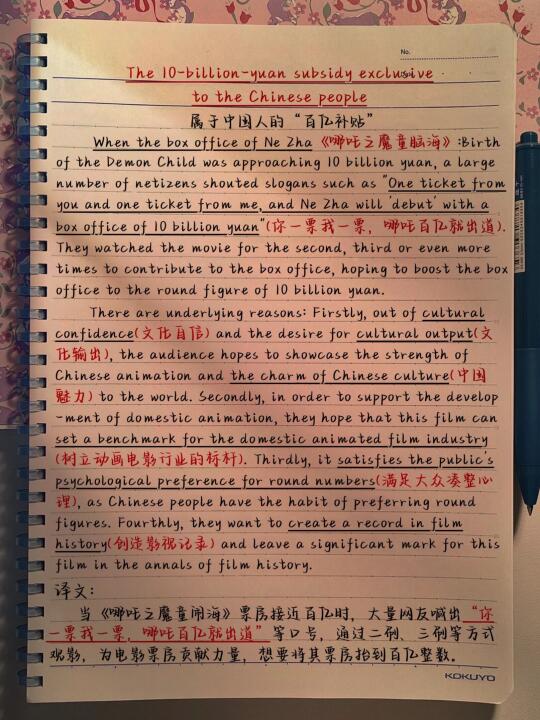 No.
The 10-billion-yuan subsidy exclusive
to the Chinese people
属于中国人的“百亿补贴”
When the box office of Ne Zha《哪吒之魔童脑海》:Birth
of the Demon Child was approaching 10 billion yuan, a large
number of netizens shouted slogans such as "One ticket from
you and one ticket from me, and Ne Zha will 'debut' with a
box office of 10 billion yuan"(你一票我一票，哪吒百亿就出道).
They watched the movie for the second, third or even more
times to contribute to the box office, hoping to boost the box
office to the round figure of 10 billion yuan.
There are underlying reasons: Firstly, out of cultural
confidence(文化自信) and the desire for cultural output(文
化输出), the audience hopes to showcase the strength of
Chinese animation and the charm of Chinese culture(中国
魅力) to the world. Secondly, in order to support the develop
-ment of domestic animation, they hope that this film can
set a benchmark for the domestic animated film industry
(树立动画电影行业的标杆). Thirdly, it satisfies the public's
psychological preference for round numbers(满足大众凑整心
理), as Chinese people have the habit of preferring round
figures. Fourthly, they want to create a record in film
history(创造影视记录) and leave a significant mark for this
film in the annals of film history.
译文:
当《哪吒之魔童闹海》票房接近百亿时，大量网友喊出“你
一票我一票，哪吒百亿就出道”等口号，通过二刷、三刷等方式
观影，为电影票房贡献力量，想要将其票房抬到百亿整数。
KOKUYO